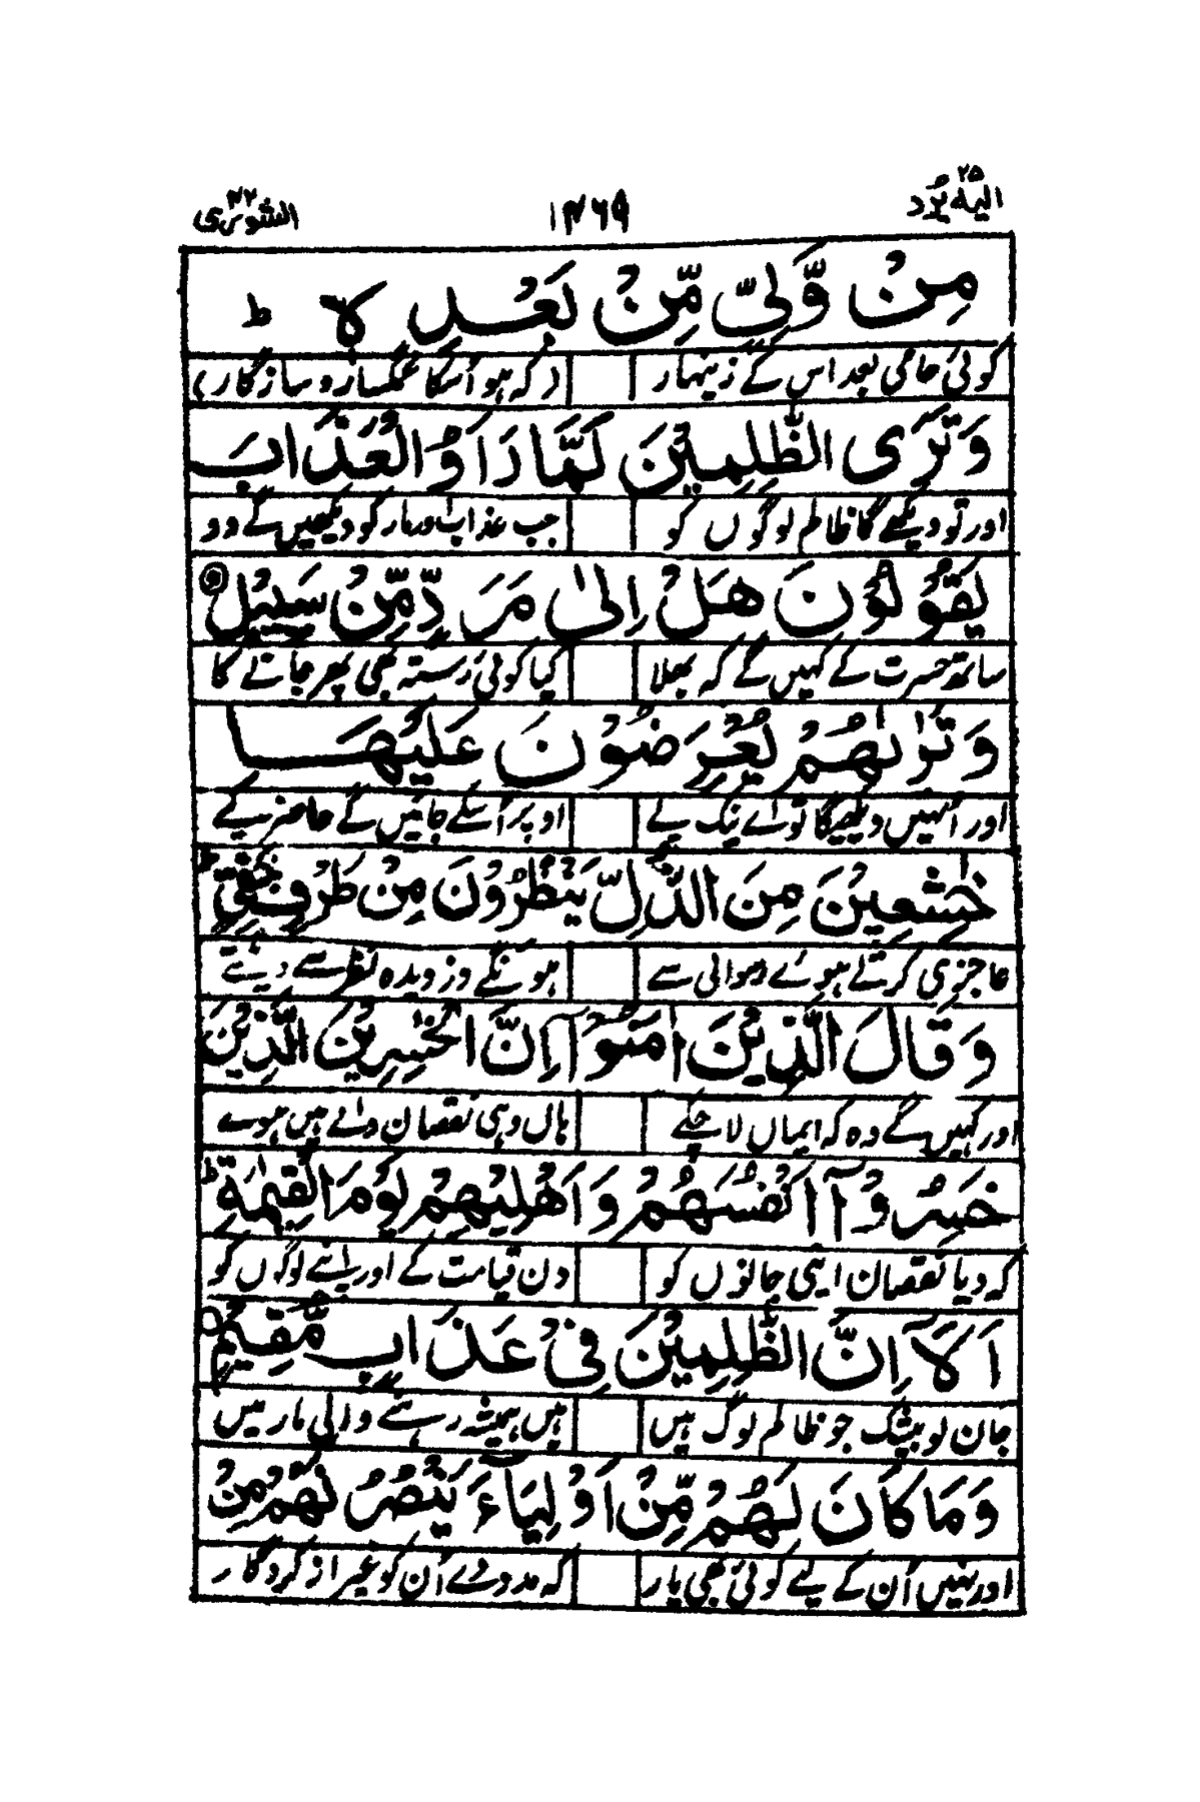 الیہ یرد ۲۵ ۱۴۶۹ الشوریٰ ۴۲
مِنْ وَّلِیٍّ مِّنْۢ بَعْدِهٖ ؕ
کوئی حامی بعد اس کے زینہار (کہ ہو اُسکا غمگسار و سازگار)
وَتَرَی الظّٰلِمِیْنَ لَمَّا رَاَوُا الْعَذَابَ
اور تو دیکھے گا ظالم لوگوں کو جب عذاب اور مار کو دیکھیں گے وہ
یَقُوْلُوْنَ هَلْ اِلٰی مَرَدٍّ مِّنْ سَبِیْلٍ
ساتھ حسرت کے کہیں گے کہ بھلا کیا کوئی رستہ بھی پھر جانے کا
وَتَرٰىهُمْ یُعْرَضُوْنَ عَلَیْهَا
اور اُنہیں دیکھیگا تو اے نیک پے اوپر اُسکے جائیں گے حاضر کیے
خٰشِعِیْنَ مِنَ الذُّلِّ یَنْظُرُوْنَ مِنْ طَرْفٍ خَفِیٍّ ؕ
عاجزی کرتے ہوئے رسوائی سے ہونگے دزدیدہ نظر سے دیکھتے
وَقَالَ الَّذِیْنَ اٰمَنُوْۤا اِنَّ الْخٰسِرِیْنَ الَّذِیْنَ
اور کہیں گے وہ کہ ایماں لا چکے ہاں وہی نقصان والے ہیں ہوئے
خَسِرُوْۤا اَنْفُسَهُمْ وَاَهْلِیْهِمْ یَوْمَ الْقِیٰمَةِ ؕ
کہ دیا نقصان اپنی جانوں کو دن قیامت کے اور اپنے لوگوں کو
اَلَاۤ اِنَّ الظّٰلِمِیْنَ فِیْ عَذَابٍ مُّقِیْمٍ
جان لو بیشک جو ظالم لوگ ہیں ہیں ہمیشہ رہنے والی مار میں
وَمَا كَانَ لَهُمْ مِّنْ اَوْلِیَآءَ یَنْصُرُوْنَهُمْ مِّنْ
اور نہیں اُن کے لیے کوئی بھی یار کہ مدد دے اُن کو غیر از کردگار